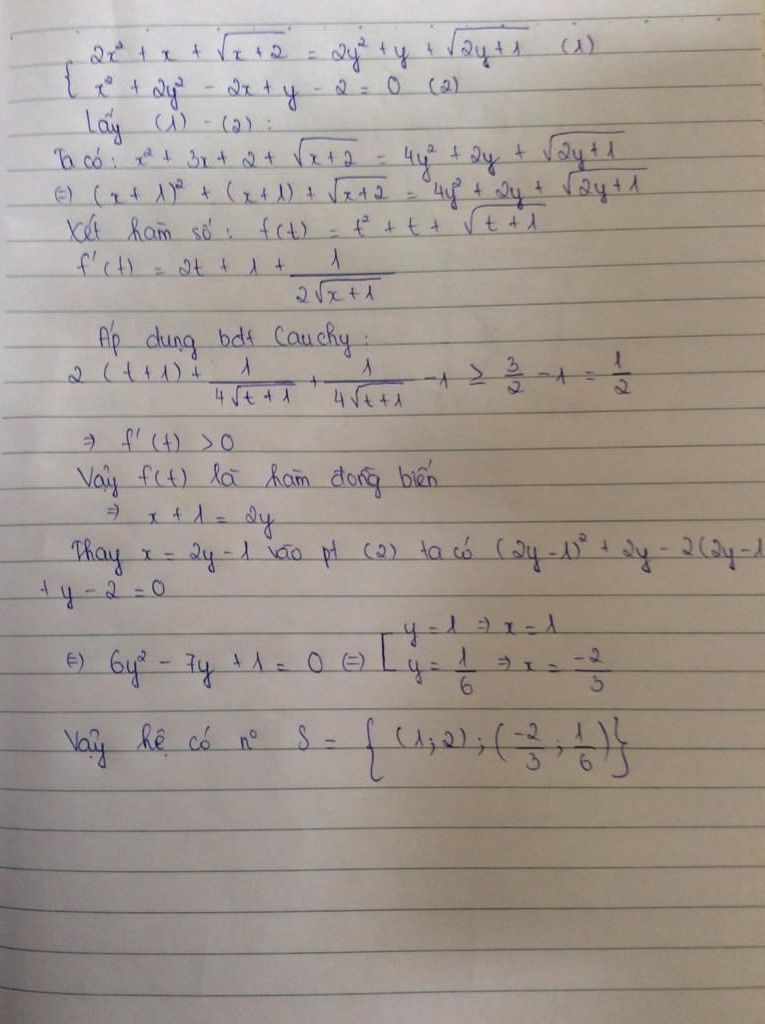 2x² + x + √(x+2) = 2y² + y + √(2y+1) (1)
x² + 2y² - 2x + y - 2 = 0 (2)
Lấy (1) - (2) :
Ta có : x² + 3x + 2 + √(x+2) = 4y² + 2y + √(2y+1)
⇔ (x + 1)² + (x+1) + √(x+2) = 4y² + 2y + √(2y+1)
Xét hàm số : f(t) = t² + t + √(t+1)
f'(t) = 2t + 1 + 1/(2√(x+1))
Áp dụng bđt Cauchy :
2 (t+1) + 1/(4√(t+1)) + 1/(4√(t+1)) - 1 ≥ 3/2 - 1 = 1/2
⇒ f'(t) > 0
Vậy f(t) là hàm đồng biến
⇒ x + 1 = 2y
Thay x = 2y - 1 vào pt (2) ta có (2y - 1)² + 2y - 2(2y-1
+ y - 2 = 0
⇔ 6y² - 7y + 1 = 0 ⇔ [ y = 1 ⇒ x = 1
y = 1/6 ⇒ x = -2/3
Vậy hệ có n° S = { (1; 2) ; (-2/3 ; 1/6) }